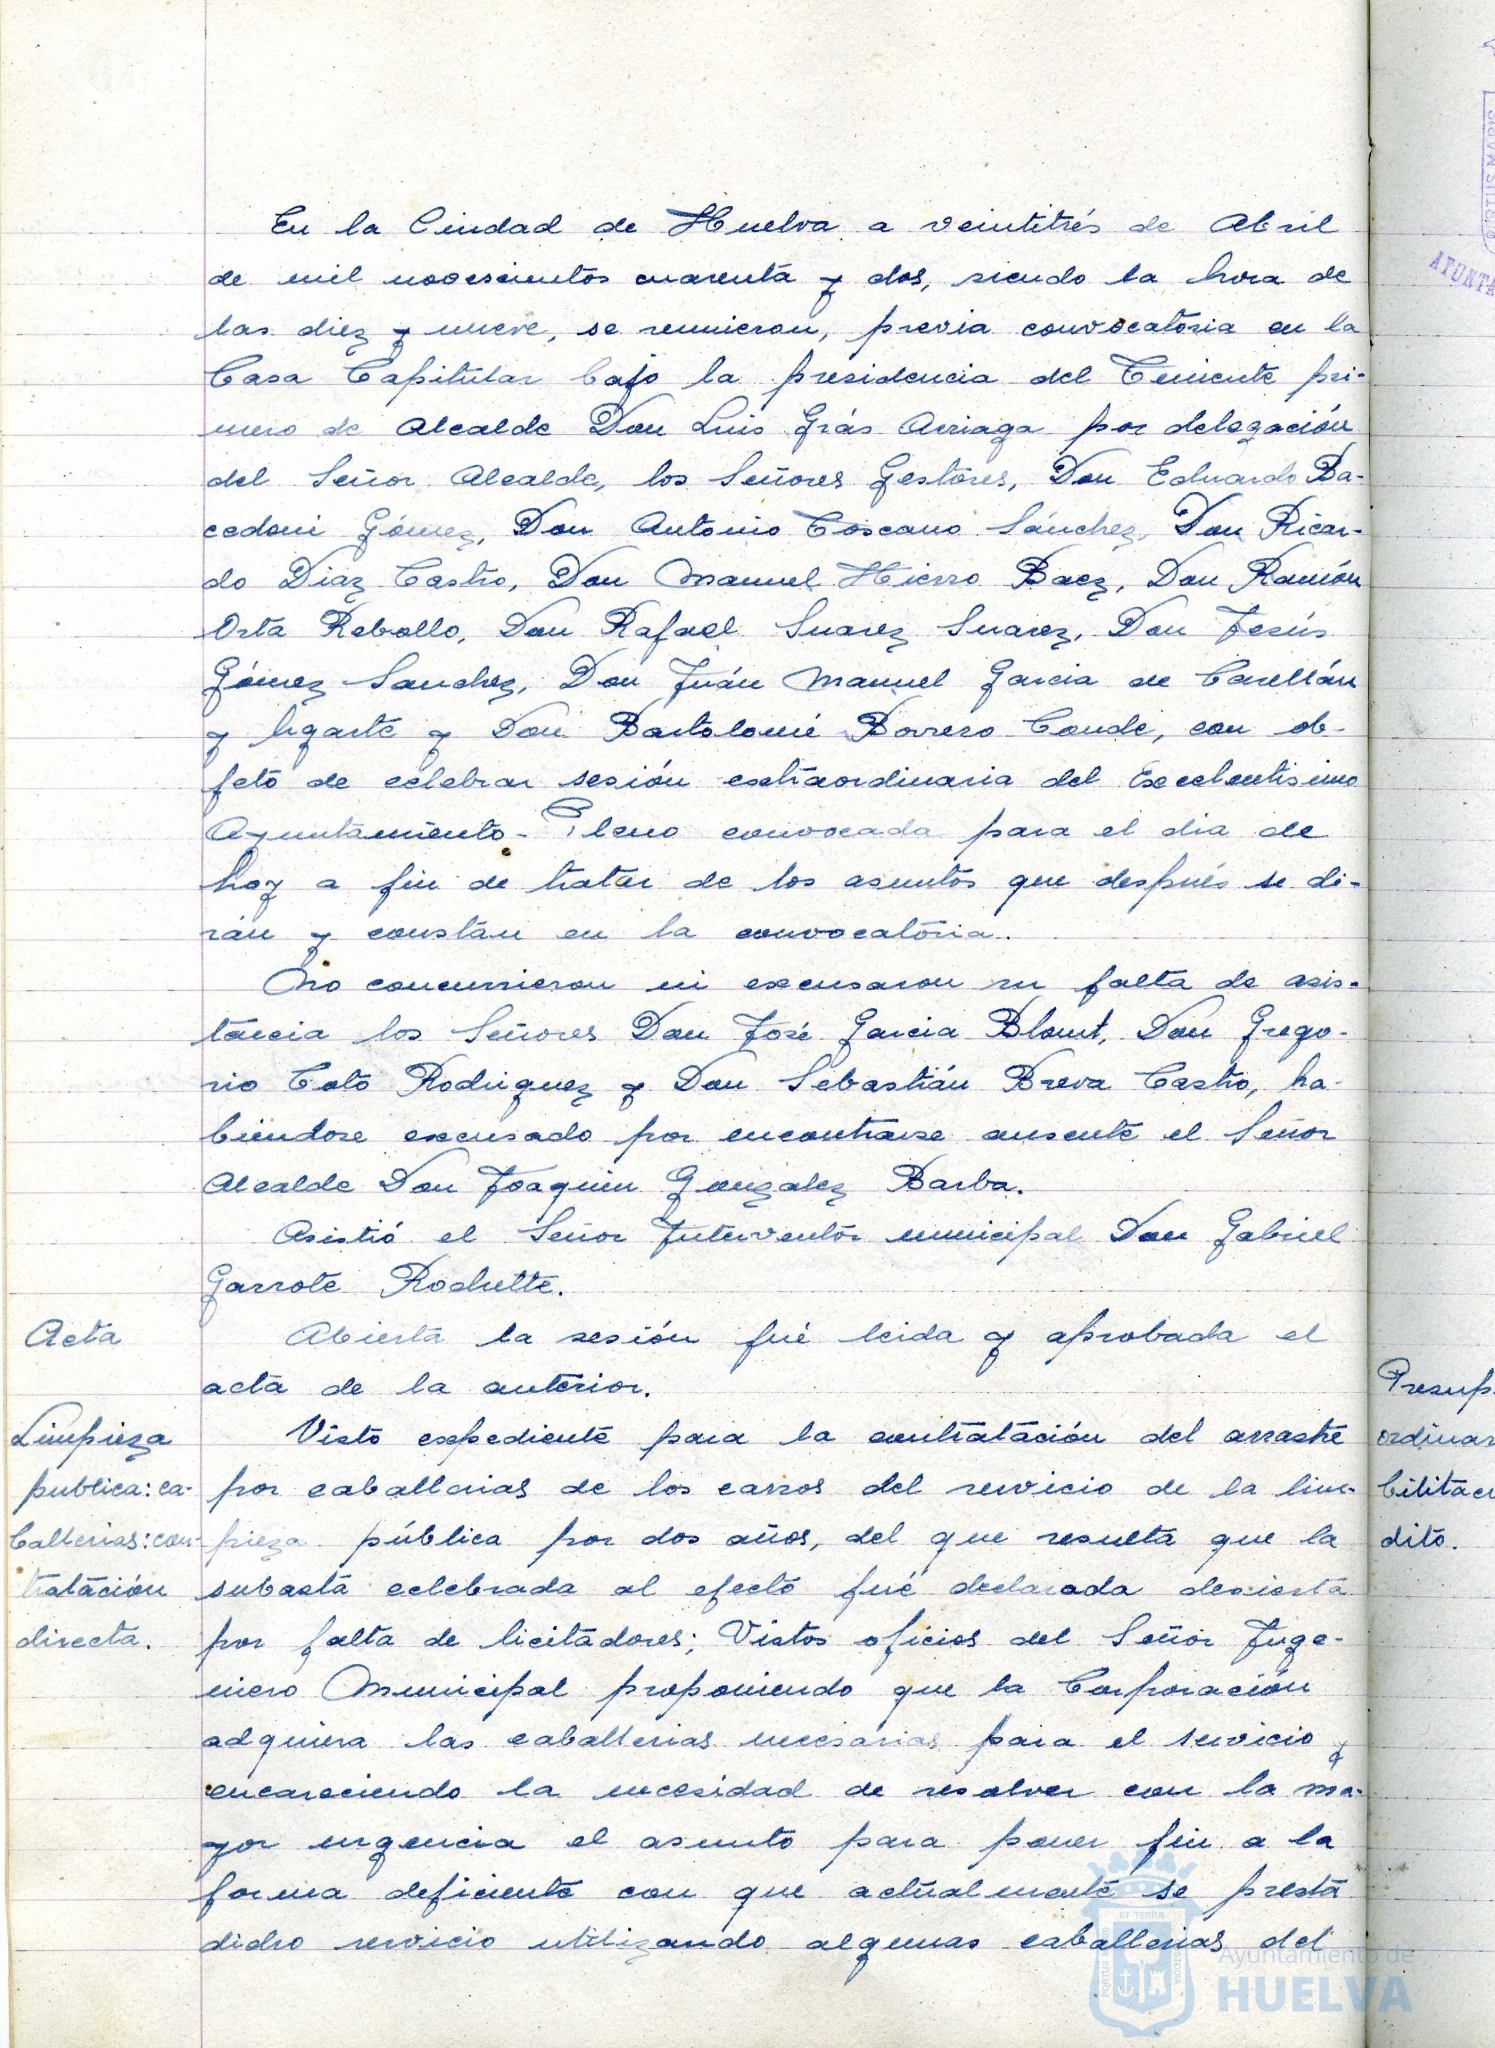 En la Ciudad de Huelva a veintitrés de Abril
de mil novescientos cuarenta y dos, siendo la hora de
las diez y nueve, se reunieron, previa convocatoria en la
Casa Capitular bajo la presidencia del Teniente pri-
mero de Alcalde Don Luis Grás Arriaga por delegación
del Señor Alcalde, los Señores Gestores, Don Eduardo Ba-
cedoni Gómez, Don Antonio Toscano Sánchez, Don Ricar-
do Diaz Castro, Don Manuel Hierro Baez, Don Ramón
Orta Rebollo, Don Rafael Suarez Suarez, Don Jesús
Gómez Sanchez, Don Juán Manuel Garcia de
y Ugarte y Don Bartolomé Borrero Conde, con ob-
jeto de celebrar sesión extraordinaria del Excelentisimo
Ayuntamiento-Pleno convocada para el dia de
hoy a fin de tratar de los asuntos que después se di-
rán y constán en la convocatoria.
No concurrieron ni excusaron su falta de asis-
tencia los Señores Don José Garcia Blount, Don Grego-
rio Coto Rodriguez y Don Sebastián Breva Castro, ha-
biendose excusado por encontrarse ausente el Señor
Alcalde Don Joaquin Gonzalez Barba.
Asistió el Señor Interventor municipal Don Gabriel
Garrote Rochette.
Acta
Abierta la sesión fué leida y aprobada el
acta de la anterior.
Limpieza
publica: ca-
ballerias: con-
tratación
directa.
Visto expediente para la contratación del arrastre
por caballerias de los carros del servicio de la lim-
pieza pública por dos años, del que resulta que la
subasta celebrada al efecto fué declarada desierta
por falta de licitadores; Vistos oficios del Señor Inge-
niero Municipal proponiendo que la Corporación
adquiera las caballerias necesarias para el servicio y
encareciendo la necesidad de resolver con la ma-
yor urgencia el asunto para poner fin a la
forma deficiente con que actualmente se presta
dicho servicio utilizando algunas caballerias del
Presup.
ordinar
bilitacr
dito.
PORTUS MARIS
AYUNTA
ET TERRÆ
Ayuntamiento de
HUELVA